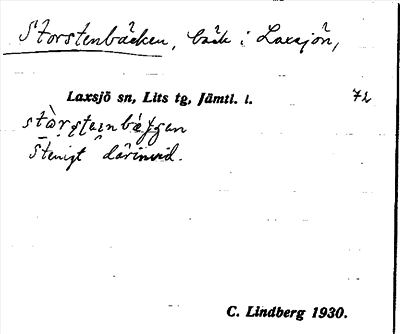 Storstenbäcken, bäck i Laxsjön,
Laxsjö sn, Lits tg, Jämtl. l. 72
Stenigt därinvid.
C. Lindberg 1930.